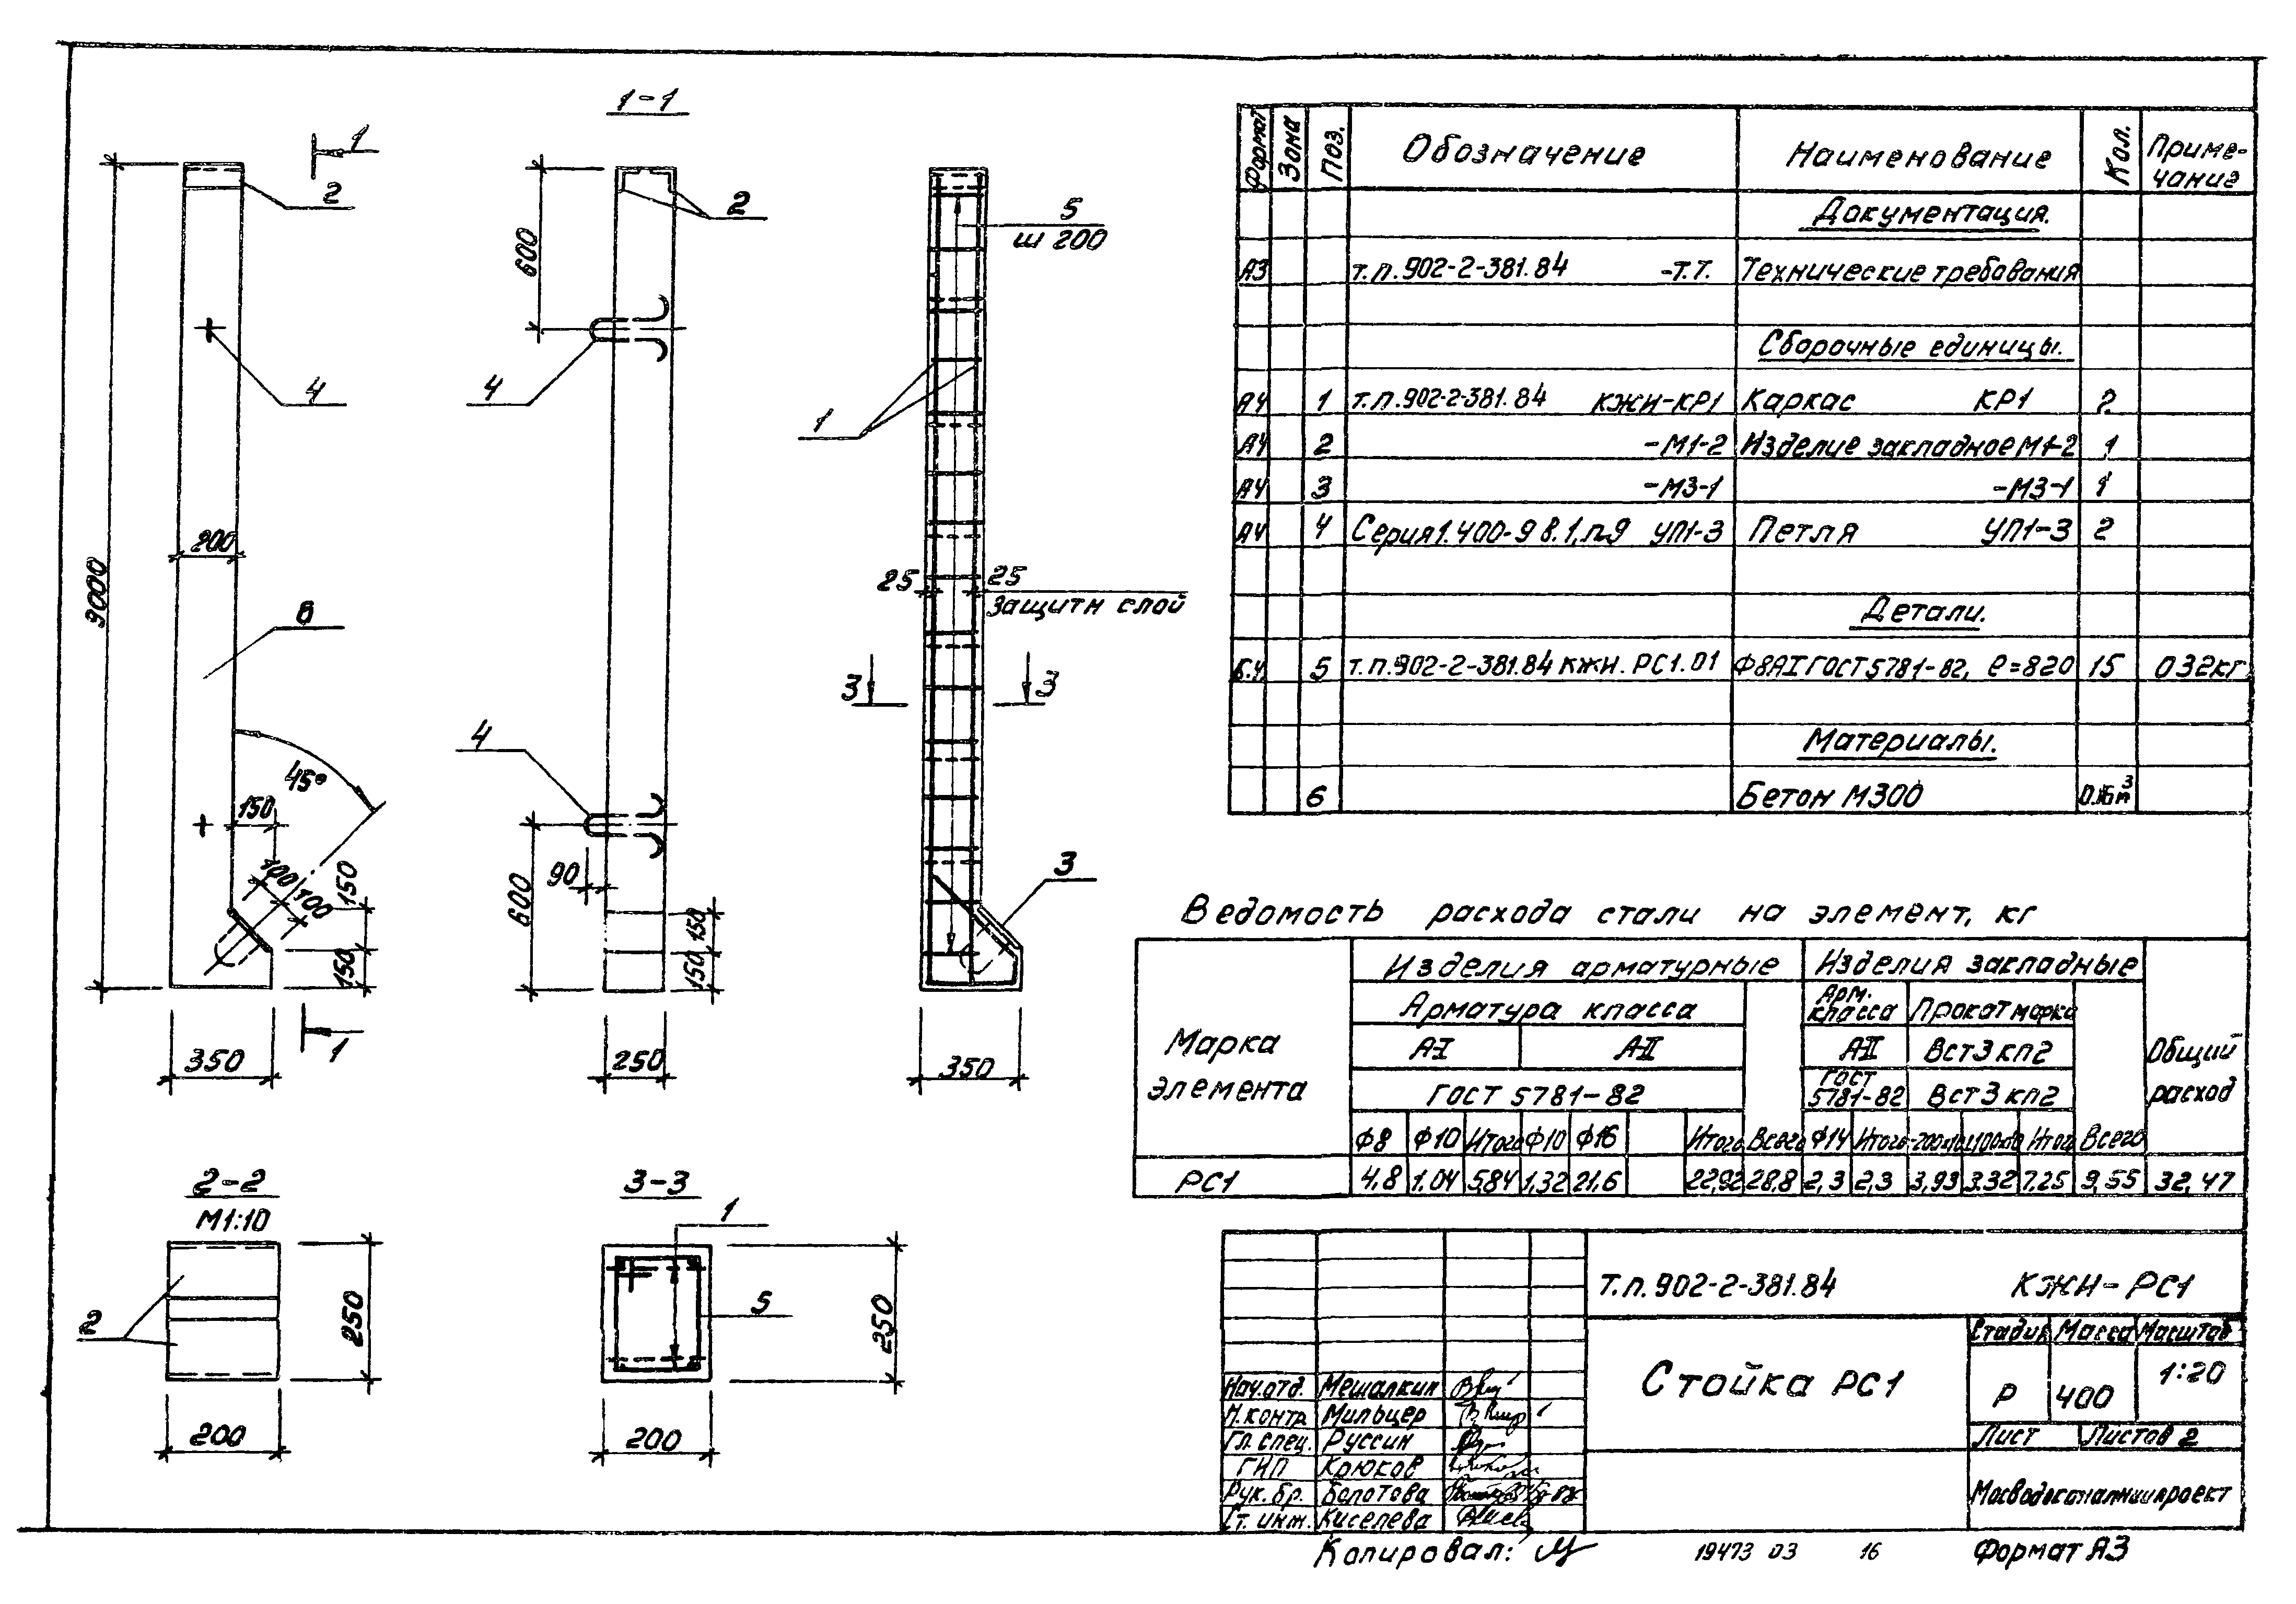 1-1
1
2
2
600
5
ш 200
4
4
1
200
9000
8
25
25
защитн слой
3
3
4
45°
150
100
100
150
150
90
600
150
150
3
1
350
250
350
2-2
М1:10
2
250
200
3-3
1
5
250
200
Формат Зона Поз. Обозначение Наименование Кол. Приме-
чание
Документация.
А3 т.п.902-2-381.84 -Т.Т. Технические требования
Сборочные единицы.
А4 1 т.п.902-2-381.84 КЖИ-КР1 Каркас КР1 2
А4 2 -М1-2 Изделие закладное М1-2 1
А4 3 -М3-1 -М3-1 1
А4 4 Серия1.400-9 в.1, л.9 УП1-3 Петля УП1-3 2
Детали.
Б.ч. 5 т.п.902-2-381.84 КЖИ.РС1.01 Ф8АI ГОСТ 5781-82, е=820 15 0.32кг
Материалы.
6 Бетон М300 0.16м³
Ведомость расхода стали на элемент, кг
Марка
элемента
Изделия арматурные Изделия закладные
Общий
расход
Арматура класса
Арм.
класса
Прокат марки
А-I А-II А-II Вст3кп2
ГОСТ 5781-82
ГОСТ
5781-82
Вст3кп2
Ф8 Ф10 Итого Ф10 Ф16 Итого Всего Ф14 Итого Итого Всего
РС1 4,8 1.04 5,84 1,32 21,6 22,92 28,8 2,3 2,3 3,93 3.32 7.25 9,55 32,47
Т.п.902-2-381.84 КЖИ-РС1
Стойка РС1
Стадия Масса Масштаб
Р 400 1:20
Лист Листов 2
Мосводоканалниипроект
Нач.отд. Мешалкин
Н.контр. Мильцер
Гл.спец. Руссин
ГИП Крюков
Рук.бр. Болотова
Ст.инж. Киселева
Копировал: 19473 03 16 Формат А3